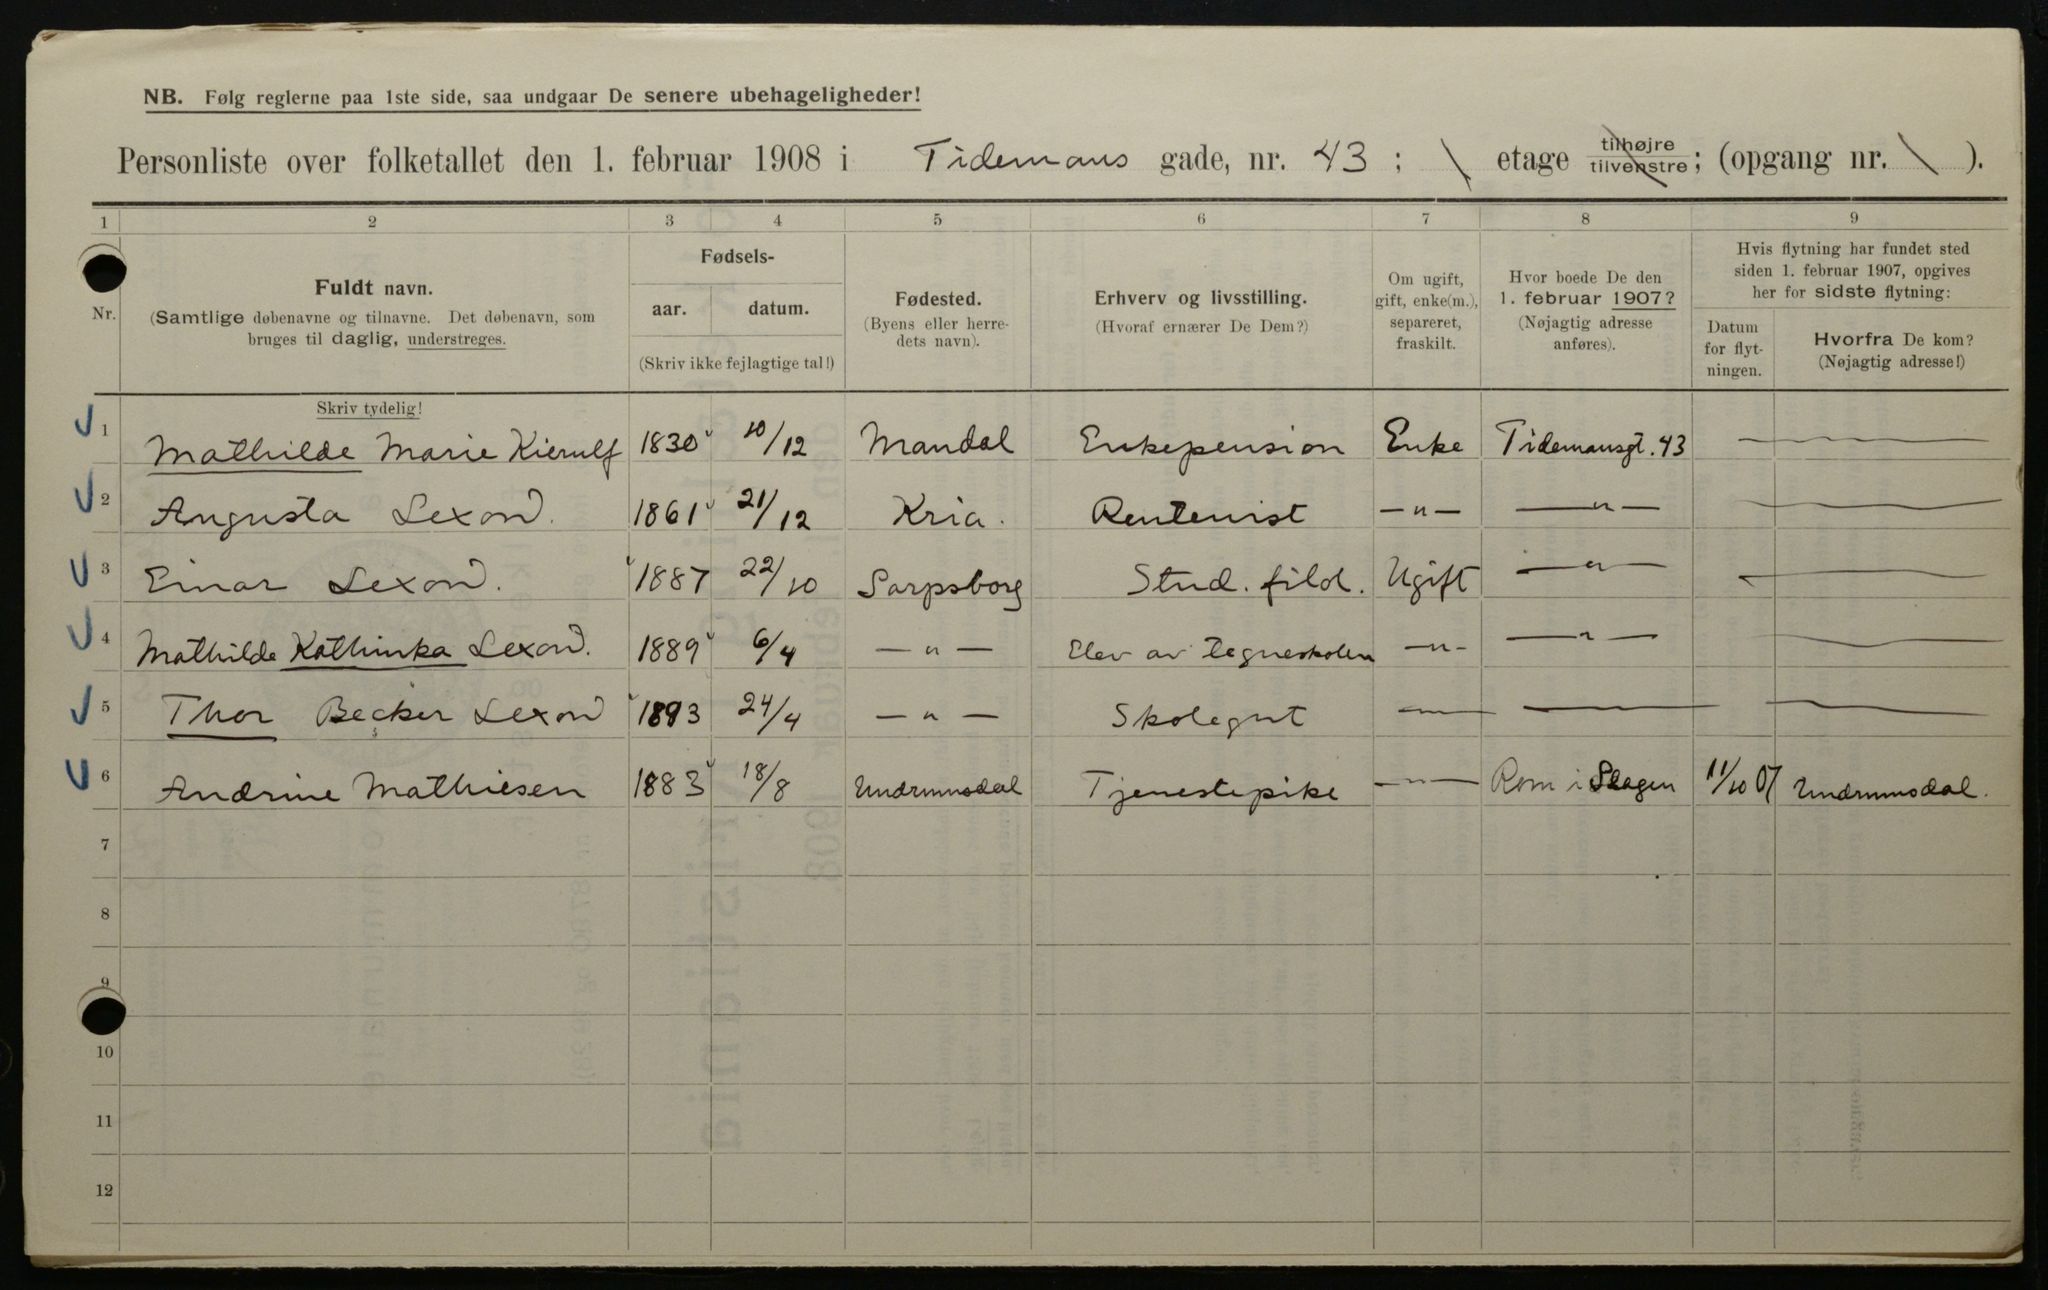 NB. Følg reglerne paa 1ste side, saa undgaar De senere ubehageligheder!
Personliste over folketallet den 1. februar 1908 i Tidemans gade, nr. 43; \ etage tilhøjre tilvenstre; (opgang nr. \ ).
1 2 3 4 5 6 7 8 9
Nr.
Fuldt navn.
(Samtlige døbenavne og tilnavne. Det døbenavn, som
bruges til daglig, understreges.
Fødsels-
aar. datum.
(Skriv ikke fejlagtige tal!)
Fødested.
(Byens eller herre-
dets navn).
Erhverv og livsstilling.
(Hvoraf ernærer De Dem?)
Om ugift,
gift, enke(m.),
separeret,
fraskilt.
Hvor boede De den
1. februar 1907?
(Nøjagtig adresse
anføres).
Hvis flytning har fundet sted
siden 1. februar 1907, opgives
her for sidste flytning:
Datum
for flyt-
ningen.
Hvorfra De kom?
(Nøjagtig adresse!)
Skriv tydelig!
1 Mathilde Marie Kierulf 1830 10/12 Mandal Enkepension Enke Tidemansgt. 43 —
2 Augusta Lexow. 1861 21/12 Kria. Rentenist —"— —"— —
3 Einar Lexow. 1887 22/10 Sarpsborg Stud. filol. Ugift —"— —
4 Mathilde Kathinka Lexow. 1889 6/4 —"— Elev av tegneskolen —"— —"— —
5 Thor Becker Lexow 1893 24/4 —"— Skolegut —"— — —
6 Andrine Mathiesen 1883 18/8 Undrumsdal Tjenestepike —"— Rom i Slagen 11/10 07 Undrumsdal.
7
8
9
10
11
12